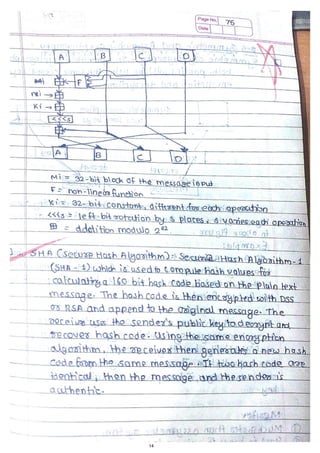 Page No. 76
Date
A B C D
Mi
F
Mi →
Ki →
<<<s
A B C D
Mi = 32-bit block of the message input
F = non-linear function
Ki = 32-bit constant, different for each operation
<<<s = left-bit rotation by s places, s varies each operation
⊞ = addition modulo 2³²
SHA (Secure Hash Algorithm) :- Secure Hash Algorithm-1
(SHA-1) which is used to compute hash values for
calculating a 160 bit hash code based on the plain text
message. The hash code is then encrypted with DSS
or RSA and append to the original message. The
receiver use the sender's public key to decrypt and
recover hash code. Using the same encryption
algorithm, the receiver then generates a new hash
code from the same message. If two hash code are
identical, then the message and the sender is
authentic.
14